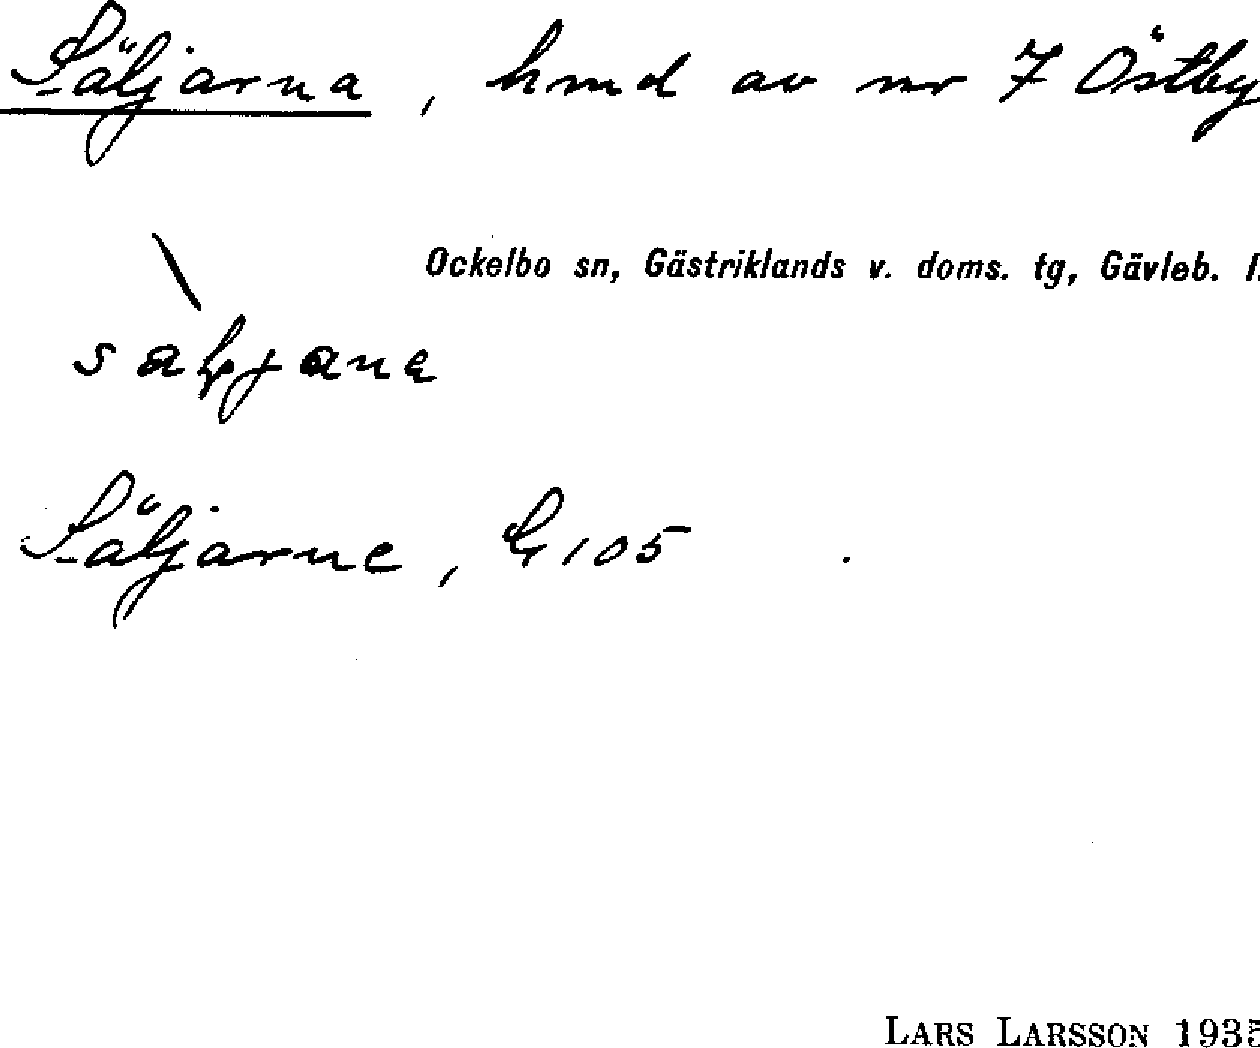 Säljarna, hmd av nr 7 Östby
Ockelbo sn, Gästriklands v. doms. tg, Gävleb. l.
Säljarne, Lr 105
LARS LARSSON 1935